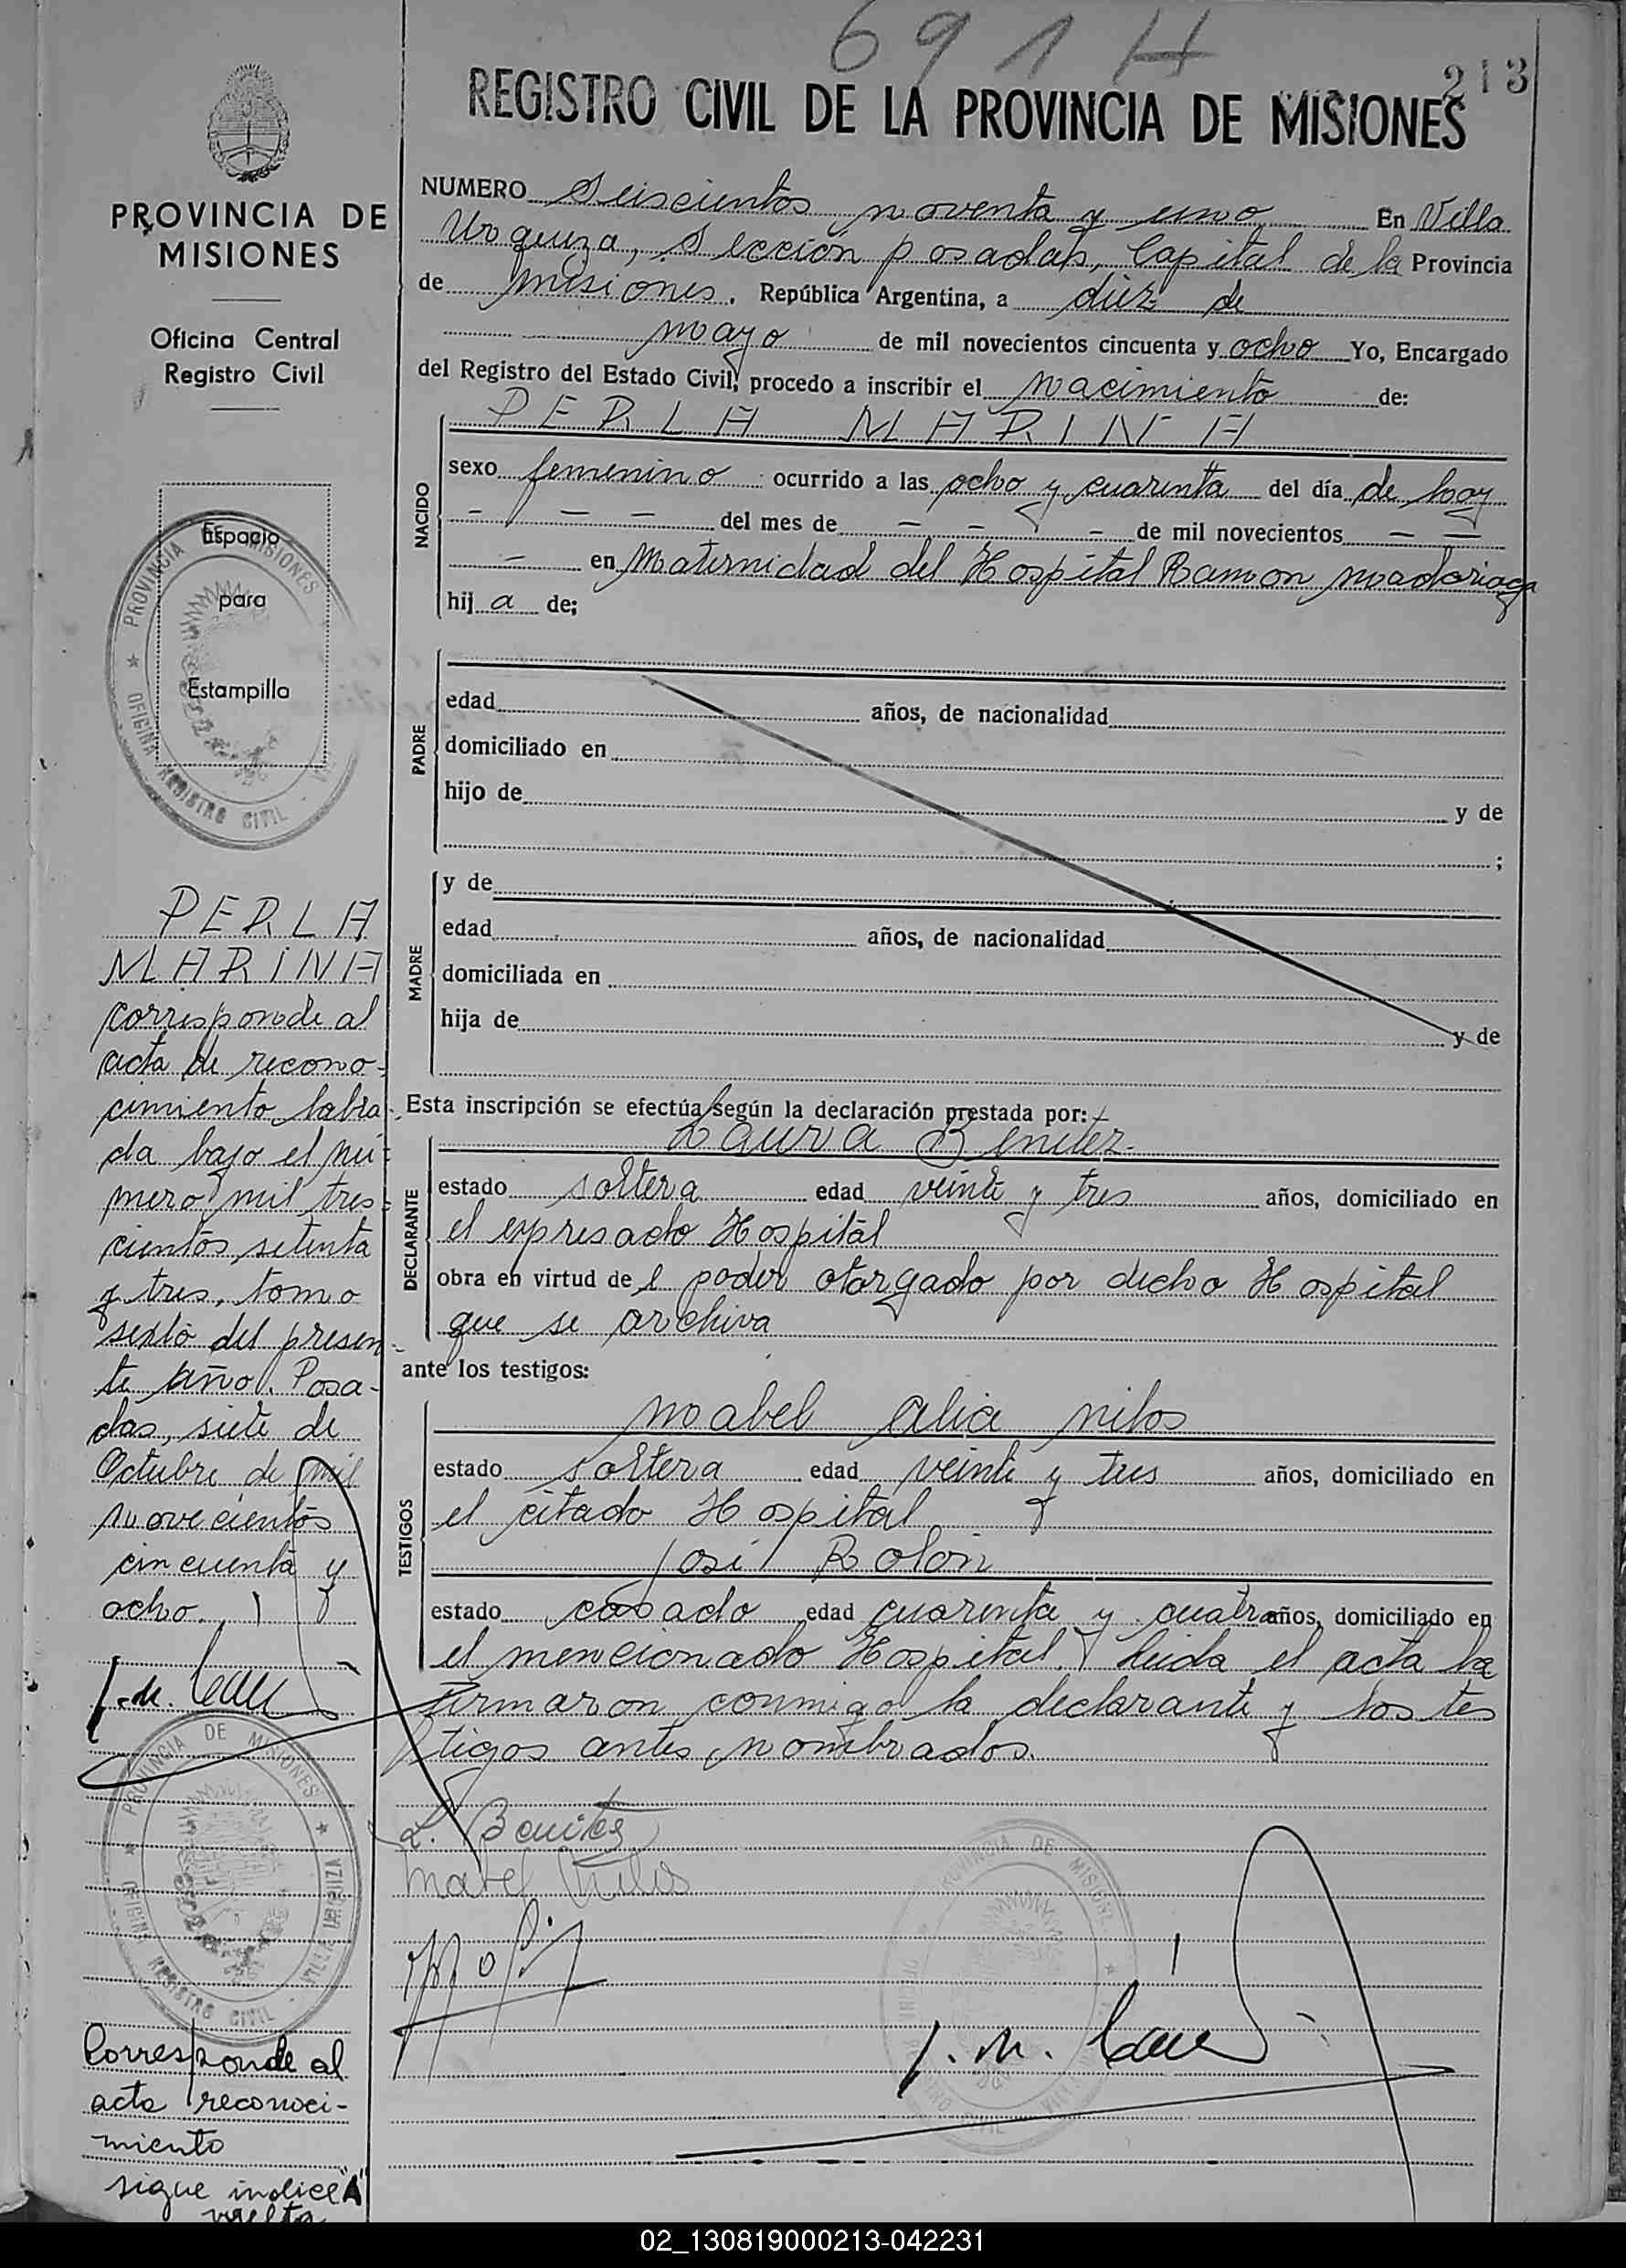 691 H
213
REGISTRO CIVIL DE LA PROVINCIA DE MISIONES
PROVINCIA DE
MISIONES
Oficina Central
Registro Civil
Espacio
para
Estampilla
PROVINCIA MISIONES
OFICINA REGISTRO CIVIL
NUMERO Seiscientos noventa y uno En Villa
Urquiza, Sección posadas, Capital de la Provincia
de misiones. República Argentina, a diez de
mayo de mil novecientos cincuenta y ocho Yo, Encargado
del Registro del Estado Civil, procedo a inscribir el nacimiento de:
NACIDO
PERLA MARINA
sexo femenino ocurrido a las ocho y cuarenta del día de hoy
- - - del mes de - - - de mil novecientos - -
- en Maternidad del Hospital Ramon madariaga
hij a de;
PADRE
edad años, de nacionalidad
domiciliado en
hijo de y de
;
MADRE
y de
edad años, de nacionalidad
domiciliada en
hija de y de
Esta inscripción se efectúa según la declaración prestada por:
DECLARANTE
Laura Benitez
estado soltera edad veinte y tres años, domiciliado en
el expresado Hospital
obra en virtud de l poder otorgado por dicho Hospital
que se archiva
ante los testigos:
TESTIGOS
mabel alicia nilos
estado soltera edad veinte y tres años, domiciliado en
el citado Hospital y
José Rolón
estado casado edad cuarenta y cuatro años, domiciliado en
el mencionado Hospital. Leida el acta la
firmaron conmigo la declarante y los tes
tigos antes nombrados.
L. Benitez
Mabel
J. M.
PROVINCIA DE MISIONES
PERLA
MARINA
corresponde al
acta de recono-
cimiento labra-
da bajo el nú-
mero mil tres-
cientos setenta
y tres, tomo
sexto del presen-
te año. Posa-
das, siete de
Octubre de mil
novecientos
cincuenta y
ocho.
J. M.
PROVINCIA DE MISIONES
OFICINA REGISTRO CIVIL - VILLA URQUIZA
Corresponde al
acta reconoci-
miento
sigue indice "A"
vuelta
02_130819000213-042231